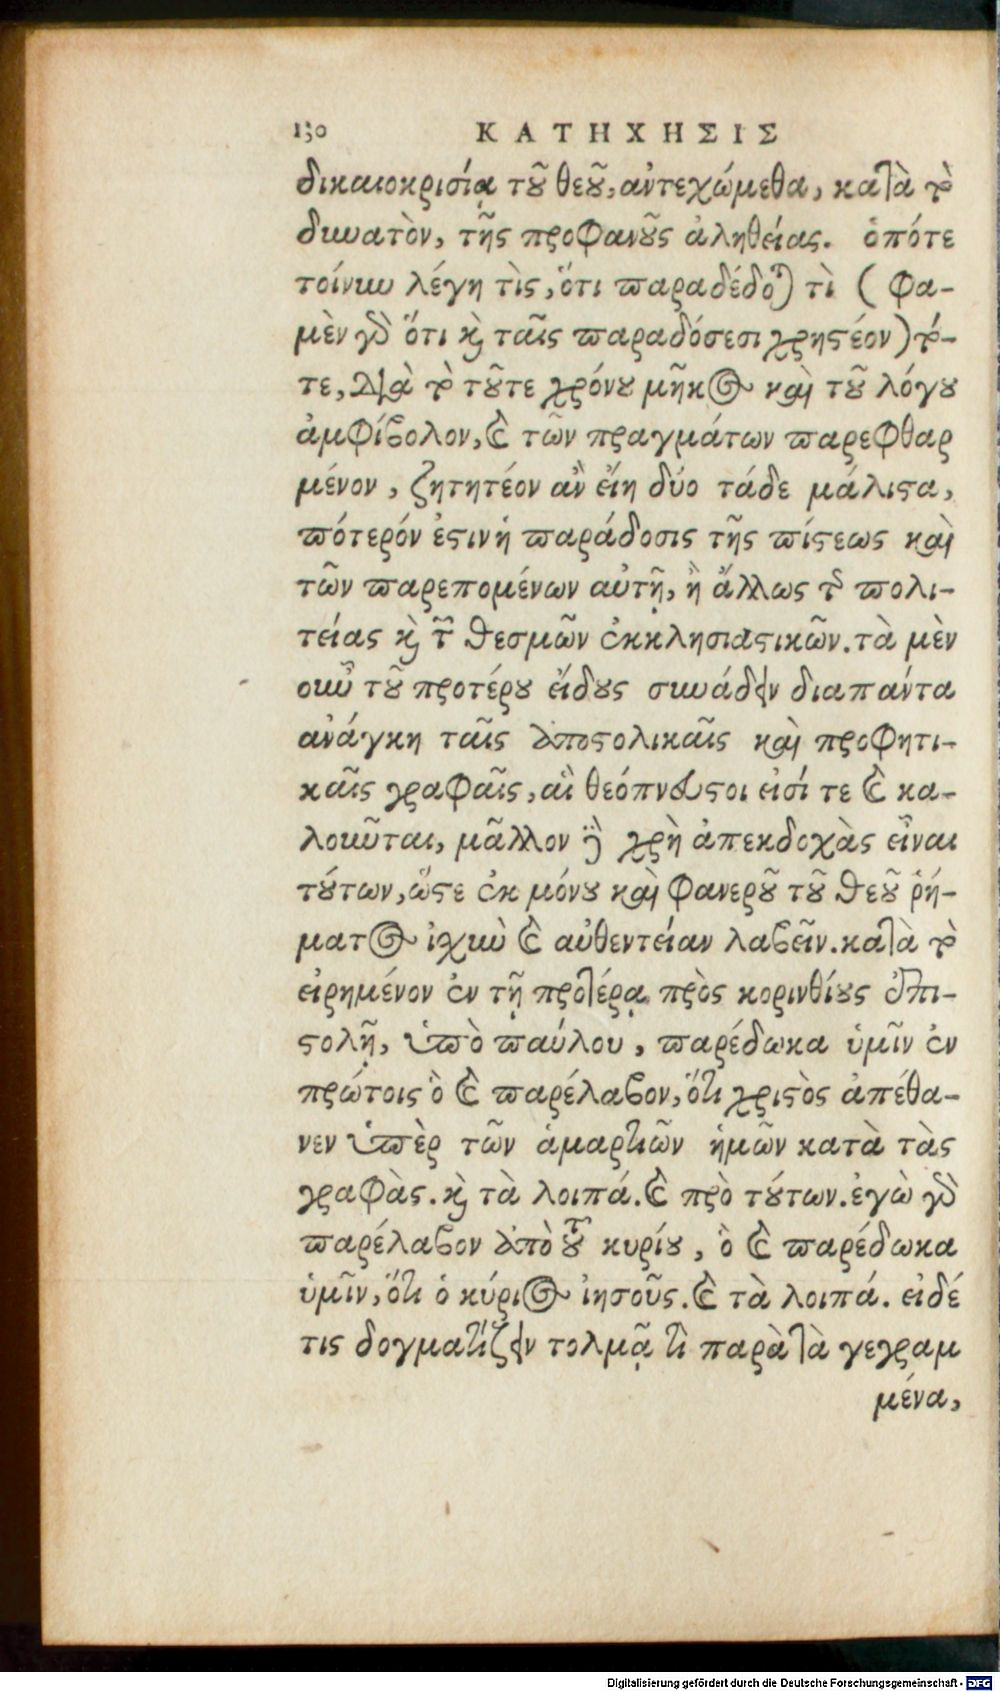 130 ΚΑΤΗΧΗΣΙΣ
δικαιοκρισίᾳ τοῦ θεοῦ, ἀντεχώμεθα, κατὰ τὸ
δυνατὸν, τῆς προφανοῦς ἀληθείας. ὁπότε
τοίνυν λέγῃ τὶς, ὅτι παραδέδοται τὶ (φα-
μὲν γὰρ ὅτι καὶ ταῖς παραδόσεσι χρηστέον) τό-
τε, διὰ τὸ τοῦτε χρόνου μῆκος καὶ τοῦ λόγου
ἀμφίβολον, καὶ τῶν πραγμάτων παρεφθαρ
μένον, ζητητέον ἀν εἴη δύο τάδε μάλιστα,
πότερόν ἐστιν ἡ παράδοσις τῆς πίστεως καὶ
τῶν παρεπομένων αὐτῇ, ἢ ἄλλως τῆς πολι-
τείας καὶ τῶν θεσμῶν ἐκκλησιαστικῶν. τὰ μὲν
οὖν τοῦ προτέρου εἴδους συνάδειν διαπάντα
ἀνάγκη ταῖς ἀποστολικαῖς καὶ προφητι-
καῖς γραφαῖς, αἳ θεόπνευστοι εἰσί τε καὶ κα-
λοῦνται, μᾶλλον δὲ χρὴ ἀπεκδοχὰς εἶναι
τούτων, ὥστε ἐκ μόνου καὶ φανεροῦ τοῦ θεοῦ ῥή-
ματος ἰχὺν καὶ αὐθεντείαν λαβεῖν. κατὰ τὸ
εἰρημένον ἐν τῇ προτέρᾳ πρὸς κορινθίους ἐπι-
στολῇ, ὑπὸ παύλου, παρέδωκα ὑμῖν ἐν
πρώτοις ὃ καὶ παρέλαβον, ὅτι χριστὸς ἀπέθα-
νεν ὑπὲρ τῶν ἁμαρτιῶν ἡμῶν κατὰ τὰς
γραφὰς. καὶ τὰ λοιπά. καὶ πρὸ τούτων. ἐγὼ γὰρ
παρέλαβον ἀπὸ τοῦ κυρίου, ὃ καὶ παρέδωκα
ὑμῖν, ὅτι ὁ κύριος ἰησοῦς. καὶ τὰ λοιπά. εἰδέ
τις δογματίζειν τολμᾷ τὶ παρὰ τὰ γεγραμ
μένα,
Digitalisierung gefördert durch die Deutsche Forschungsgemeinschaft - DFG